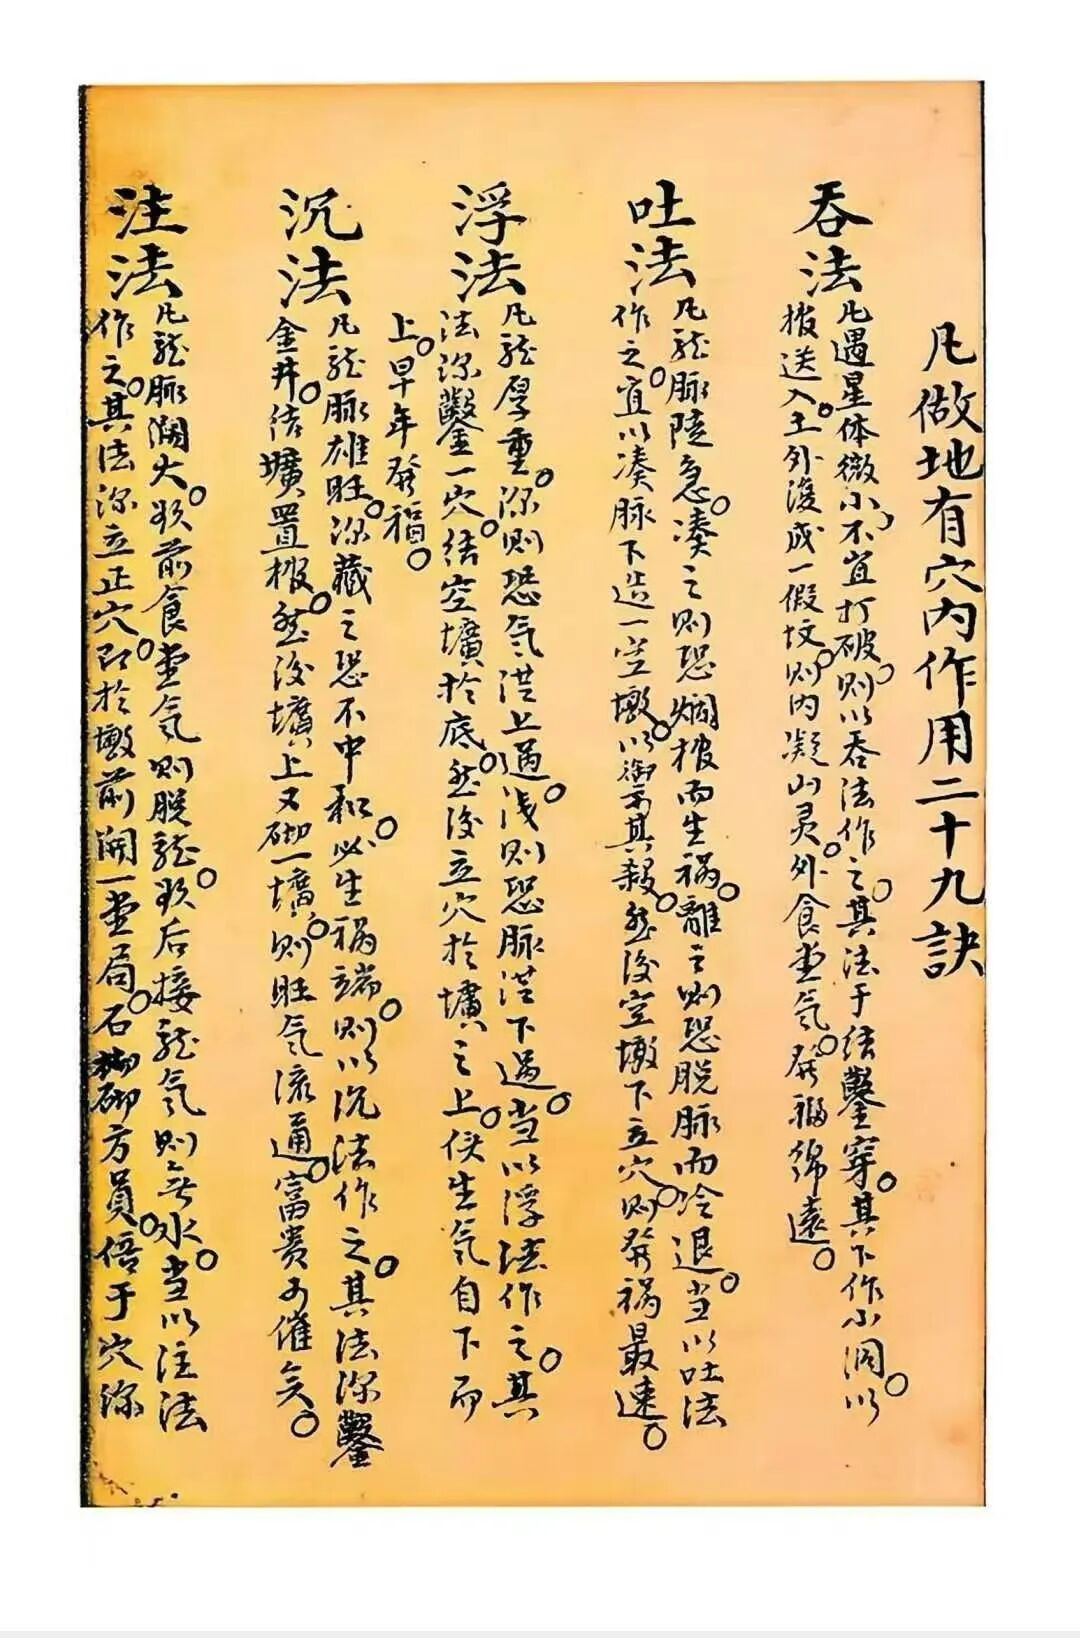 凡做地有穴内作用二十九訣
吞法
凡遇星体微小。不宜打破。则以吞法作之。其法于结鑿穿。其下作小洞。以
棺送入。土外復成一假坟。则内凝山灵。外食堂气。發福绵遠。
吐法
凡龍脉陡急。凑之则恐爛棺而生祸。離之则恐脱脉而冷退。当以吐法
作之。宜以凑脉下造一空墩。以禦其殺。然後空墩下立穴。则發祸最速。
浮法
凡龍厚重。深则恐气從上過。浅则恐脉從下過。当以浮法作之。其
法深鑿一穴。结空壙於底。然後立穴於壙之上。使生气自下而
上。早年發福。
沉法
凡龍脉雄旺。深藏之恐不中和。必生祸端。则以沉法作之。其法深鑿
金井。结壙置棺。然後壙上又砌一壙。则旺气流通。富贵可催矣。
注法
凡龍脉濶大。欲前食堂氣则脱龍。欲后接龍气则无水。当以注法
作之。其法深立正穴。即於墩前開一堂局。石砌方員。倍于穴深